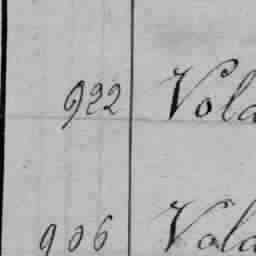 922 Vola
906 Vola